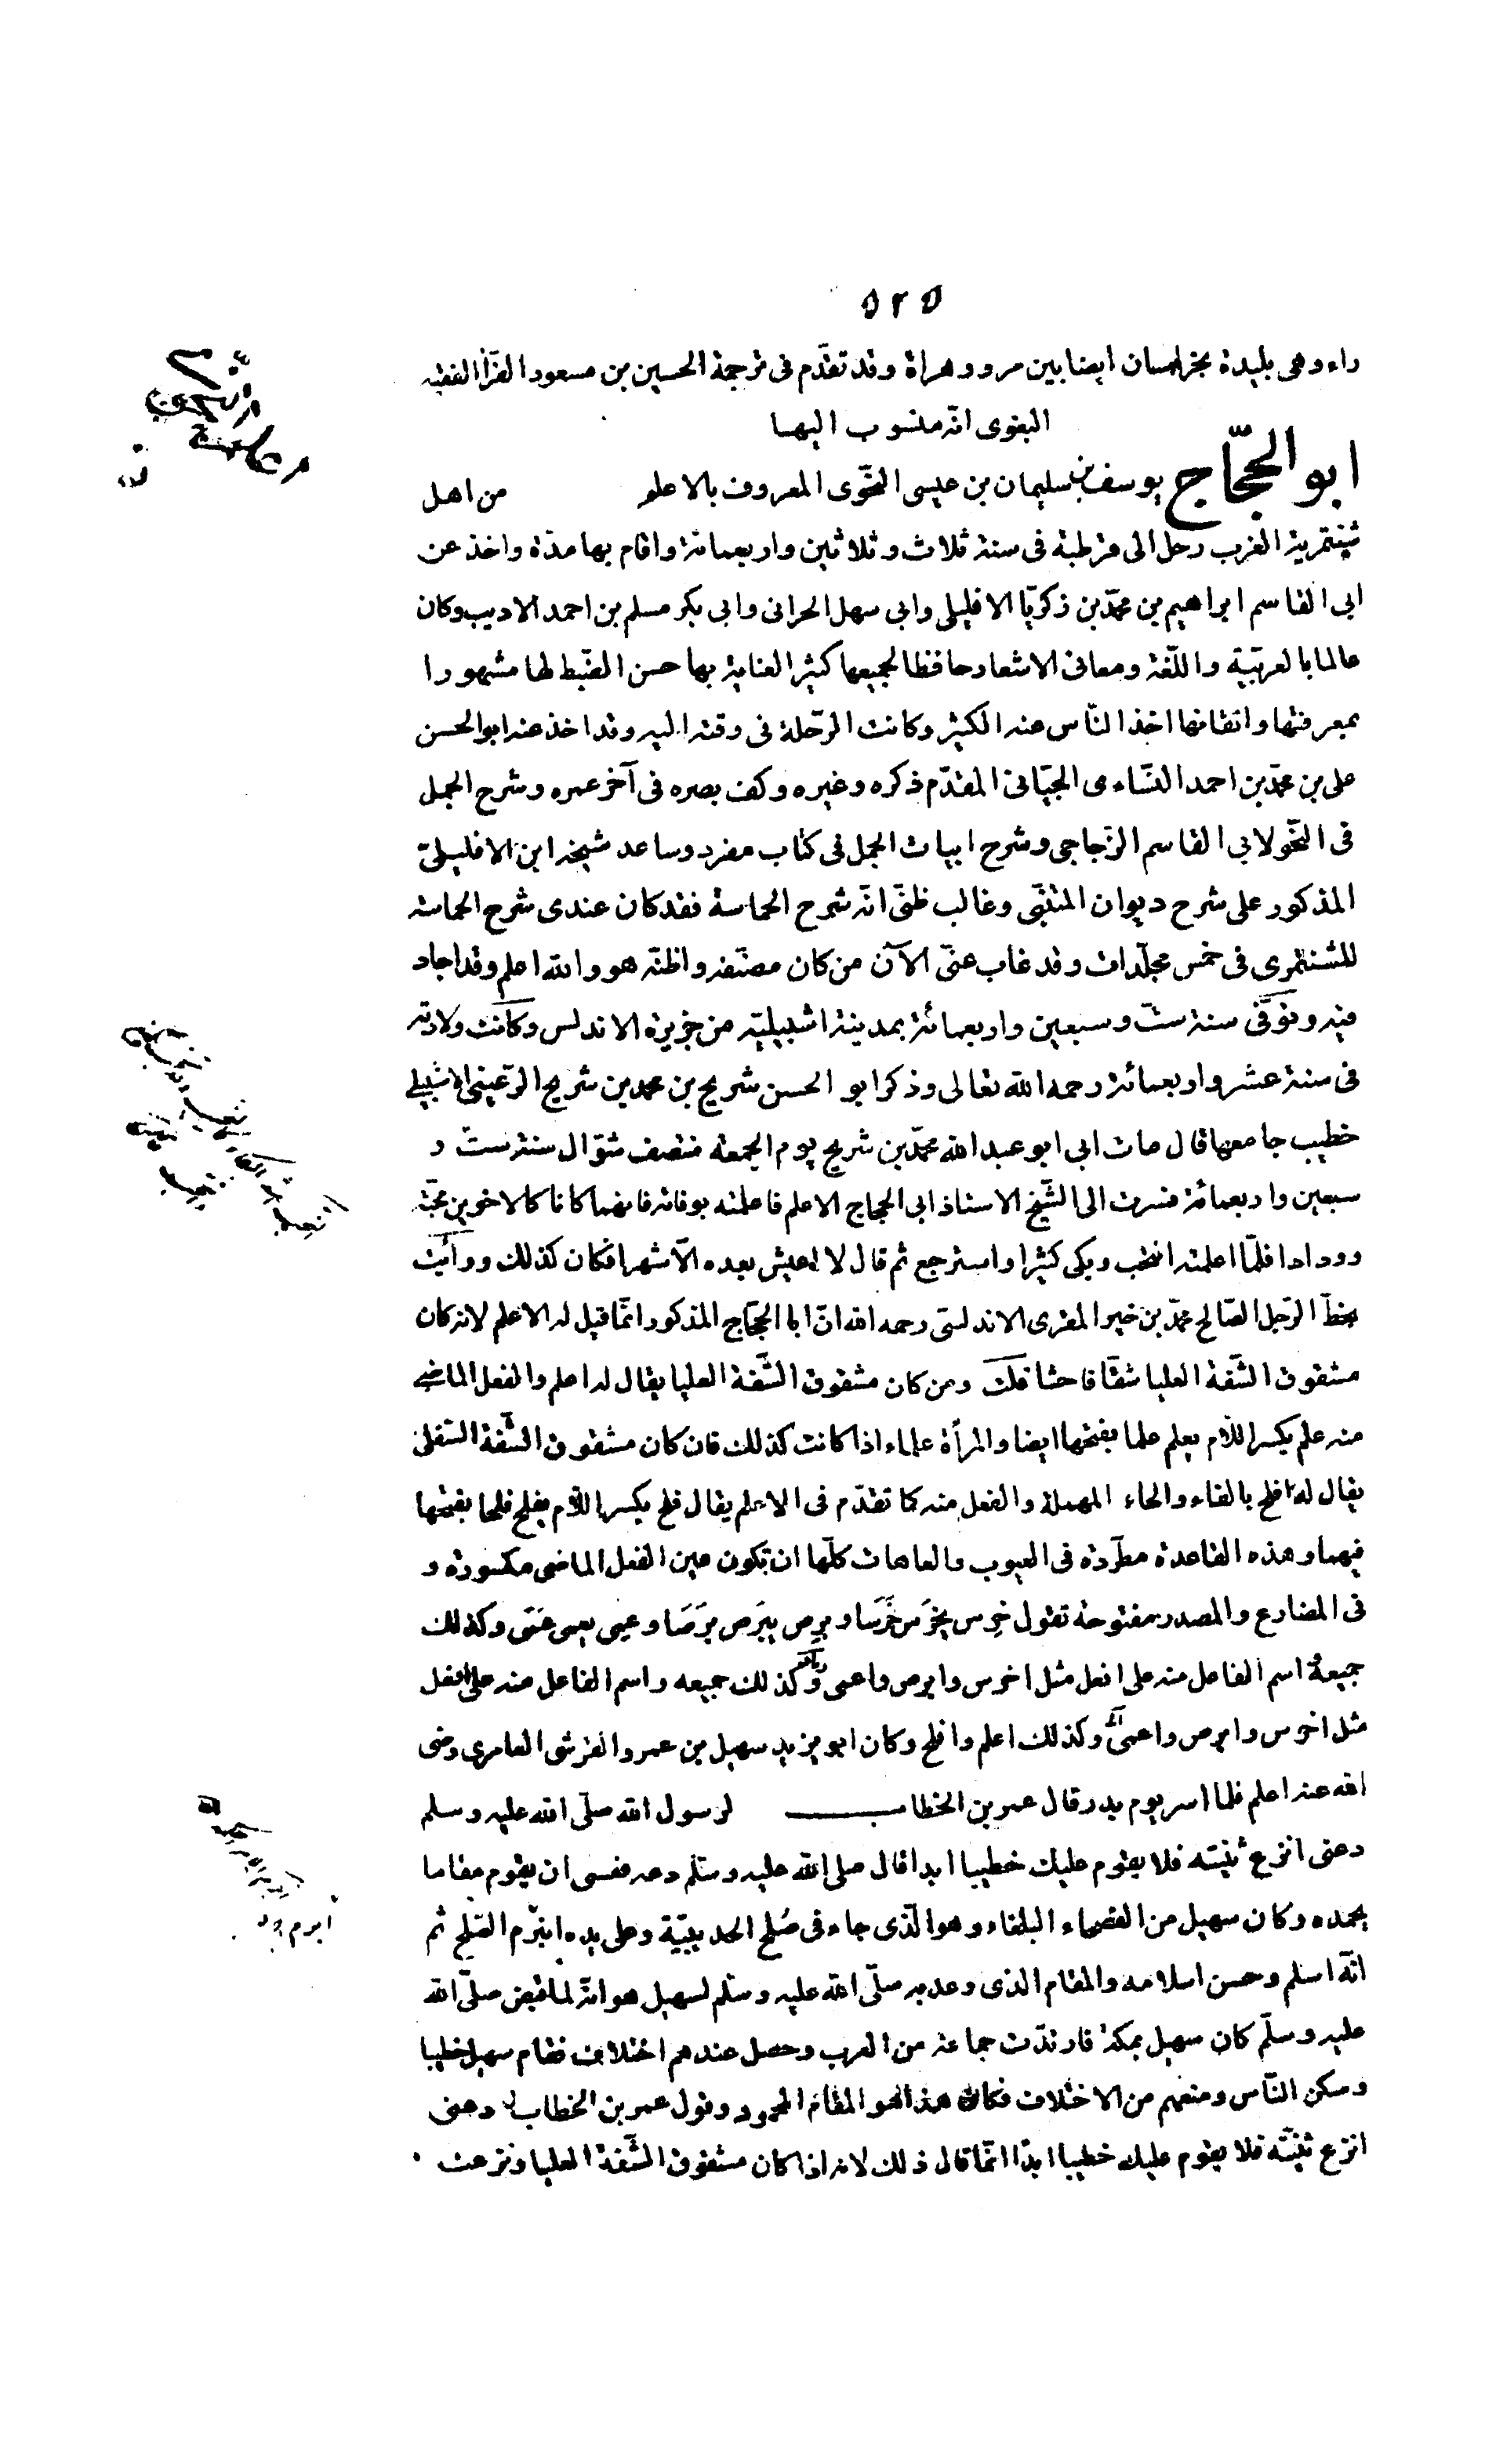 ٥٢٥
راء وهى بليدة بخراسان ايضا بين مرو وهراة وقد تقدّم فى ترجمة الحسين بن مسعود الفرّاء الفقيه
البغوى انّه منسوب اليها
ابو الحجّاج يوسف بن سليمان بن عيسى النحّوى المعروف بالاعلم من اهل
شنتمرية الغرب رحل الى قرطبة فى سنة ثلاث وثلاثين واربعمائة واقام بها مدّة واخذ عن
ابى القاسم ابراهيم بن محمّد بن زكريّا الافليلى وابى سهل الحرانى وابى بكر مسلم بن احمد الاديب وكان
عالما بالعربيّة واللّغة ومعانى الاشعار حافظا لجميعها كثير العناية بها حسن الضّبط لها مشهورا
بمعرفتها واتقانها اخذ النّاس عنه الكثير وكانت الرّحلة فى وقته اليه وقد اخذ عنه ابو الحسن
على بن محمّد بن احمد الغسّانى الجيّانى المقدّم ذكره وغيره وكف بصره فى آخر عمره وشرح الجمل
فى النّحو لابى القاسم الزّجاجى وشرح ابيات الجمل فى كتاب مفرد وساعد شيخه ابن الافليلىّ
المذكور على شرح ديوان المتنبّى وغالب ظنّى انّه شرح الحماسة فقد كان عندى شرح الحماسة
للشنتمرى فى خمس مجلّدات وقد غاب عنّى الآن من كان مصنّفه واظنّه هو والله اعلم وقد اجاد
فيه وتوفّى سنة ستّ وسبعين واربعمائة بمدينة اشبيليّة من جزيرة الاندلس وكانت ولادته
فى سنة عشر واربعمائة رحمه الله تعالى وذكر ابو الحسن شريح بن محمد بن شريح الرّعينى الاشبيلى
خطيب جامعها قال مات ابى ابو عبد الله محمّد بن شريح يوم الجمعة منتصف شوّال سنة ستّ و
سبعين واربعمائة فسرت الى الشّيخ الاستاذ ابى الحجاج الاعلم فاعلمته بوفاته فانهما كانا كالاخوين محبّة
وودادا فلمّا اعلمته انتحب وبكى كثيرا واسترجع ثم قال لا اعيش بعده الّا شهرا فكان كذلك ورأيت
بخطّ الرّجل الصّالح محمّد بن خير المقرى الاندلسىّ رحمه الله انّ ابا الحجّاج المذكور انّما قيل له الاعلم لانه كان
مشقوق الشّفة العليا شقّا فاحشا قلت ومن كان مشقوق الشّفة العليا يقال له اعلم والفعل الماضى
منه علم بكسر اللّام يعلم علما بفتحها ايضا والمرأة علماء اذا كانت كذلك فان كان مشقوق الشّفة السّفلى
يقال له افلح بالفاء والحاء المهملة والفعل منه كما تقدّم فى الاعلم يقال فلح بكسر اللّام يفلح فلحا بفتحها
فيهما وهذه القاعدة مطّردة فى العيوب والعاهات كلّها ان تكون عين الفعل الماضى مكسورة و
فى المضارع والمصدر مفتوحة تقول خرِس يخرَس خَرَسا وبرِص يبرَص بَرَصَا وعمى يعمى عَمًى وكذلك
جميعه اسم الفاعل منه على افعل مثل اخرس وابرص واعمى وكذلك جميعه واسم الفاعل منه على افعل
مثل اخرس وابرص واعمى وكذلك اعلم وافلح وكان ابو يزيد سهيل بن عمرو القرشى العامرى رضى
الله عنه اعلم فلما اسر يوم بدر قال عمر بن الخطاب لرسول الله صلّى الله عليه وسلم
دعنى انزع ثنيته فلا يقوم عليك خطيبا ابدا قال صلى الله عليه وسلّم دعه فعسى ان يقوم مقاما
يحمده وكان سهيل من الفصحاء البلغاء وهو الّذى جاء فى صُلح الحديبيّة وعلى يده انبرم الصّلح ثم
انّه اسلم وحسن اسلامه والمقام الذى وعد به صلّى الله عليه وسلّم لسهيل هو انّه لما قبض صلّى الله
عليه وسلّم كان سهيل بمكة فارتدّت جماعة من العرب وحصل عندهم اختلاف فقام سهيل خطيبا
وسكن النّاس ومنعهم من الاختلاف فكان هذا هو المقام المحمود وقول عمر بن الخطاب دعنى
انزع ثنيّته فلا يقوم عليك خطيبا ابدًا انّما قال ذلك لانه اذا كان مشقوق الشّفة العليا ونزعت